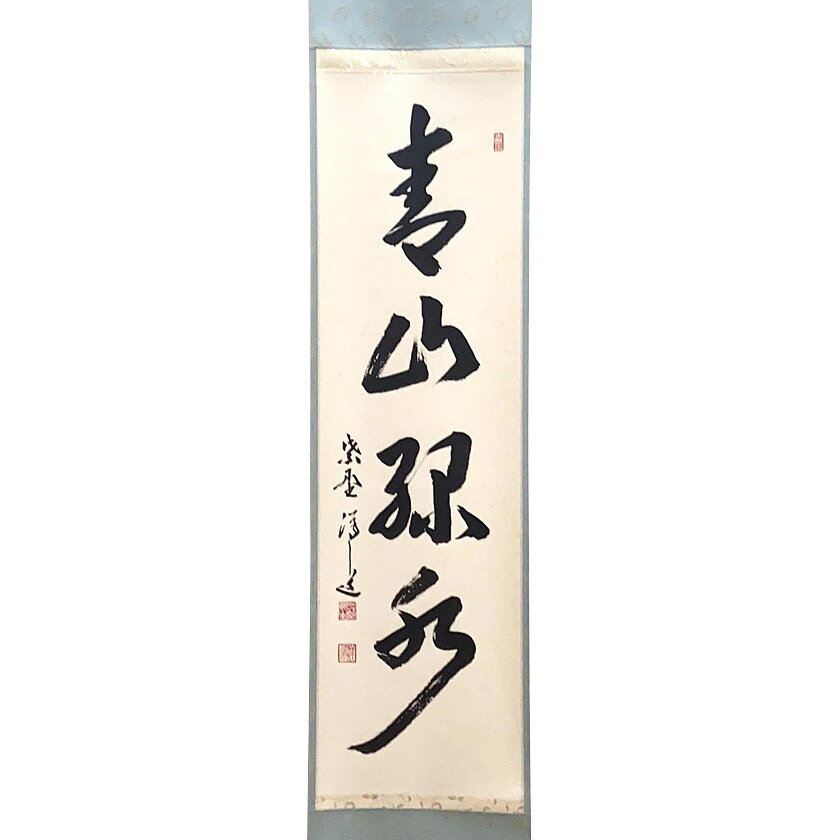 青山緑水
紫野